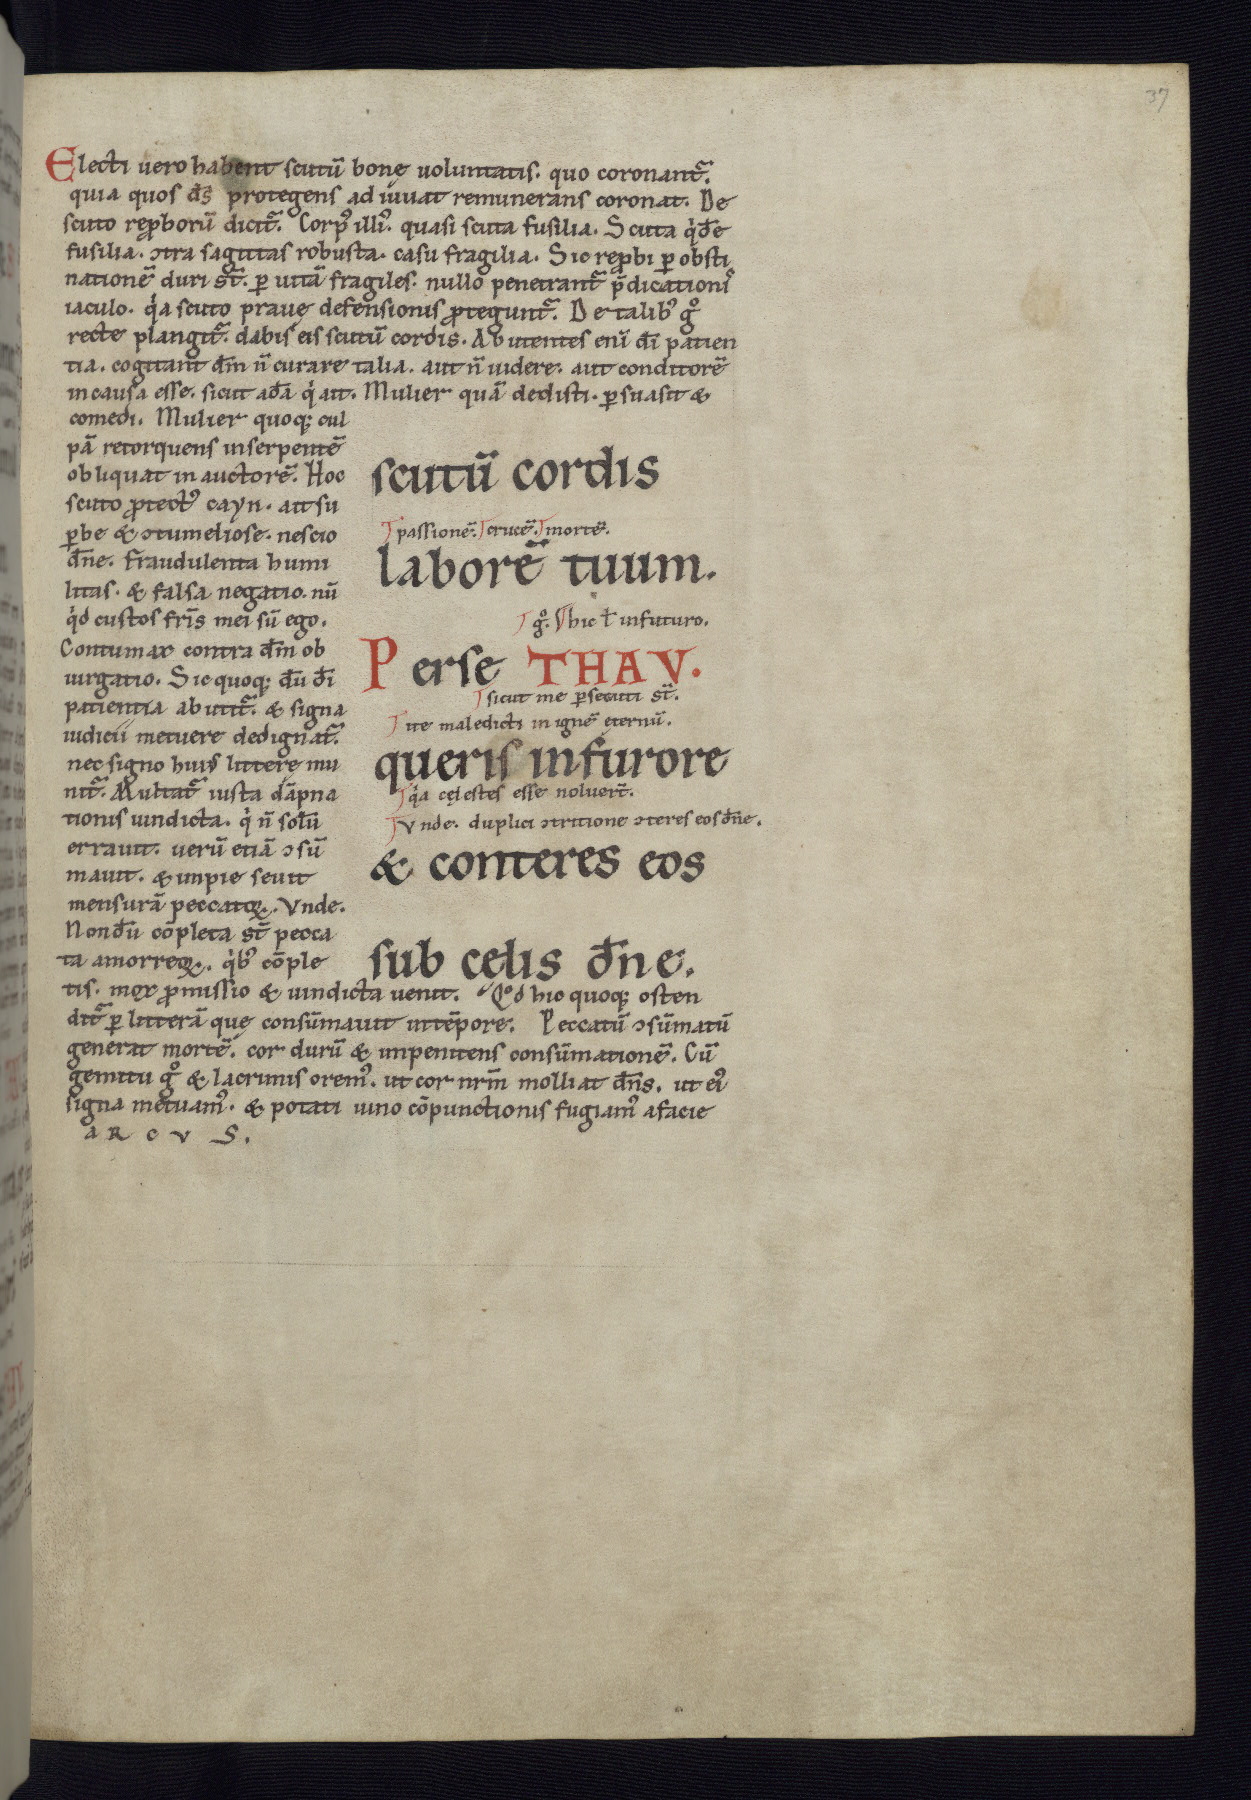 37
Electi uero habent scutū bonę uoluntatis. quo coronant᷑.
quia quos ds̄ protegens ad iuuat remunerans coronat. De
scuto reꝓborū dicit᷑. Corpꝰ illiꝰ. quasi scuta fusilia. Scuta qͥdē
fusilia. ꝯtra sagittas robusta. casu fragilia. Sic reꝓbi ꝑ obsti
nationē duri st̄. ꝑ uitā fragiles. nullo penetrant᷑ p̄dicationiꝰ
iaculo. qͥa scuto prauę defensionis ꝓtegunt᷑. De talibꝰ gͦ
recte plangit᷑. dabis eis scutū cordis. Abutentes enī dī patien
tia. cogitant dn̄m n̄ curare talia. aut n̄ uidere. aut conditorē
in causa esse. sicut adā qͥ ait. Mulier quā dedisti. ꝑsuasit &
comedi. Mulier quoq; cul
pā retorquens in serpentē
obliquat in auctorē. Hoc
scuto ꝓtectꝰ cayn. ait su
ꝑbe & ꝯtumeliose. nescio
dn̄e. fraudulenta humi
litas. & falsa negatio. nū
qͥd custos fr̄is mei sū ego.
Contumax contra dn̄m ob
iurgatio. Sic quoq; dū dī
patientia abutit᷑. & signa
iudicii metuere dedignat᷑.
nec signo huiꝰ litterę mu
nit᷑. Multat᷑ iusta dāpna
tionis uindicta. qͥ n̄ solū
errauit. uerū etiā ꝯsū
mauit. & impie seuit
mensurā peccatoꝝ. Vnde.
Nondū cōpleta st̄ pecca
ta amorreoꝝ. qͥbꝰ cōple
tis. mox ꝓmissio & uindicta uenit. Qͦd hic quoq; osten
dit᷑ ꝑ litterā quę consūmauit in tēpore. Peccatū ꝯsūmatū
generat mortē. cor durū & inpenitens consūmationē. Cū
gemitu gͦ & lacrimis oremꝰ. ut cor nr̄m molliat dn̄s. ut eiꝰ
signa metuamꝰ. & potati uino cōpunctionis fugiamꝰ a facie
aRcvS.
scutū cordis
passionē. crucē. mortē.
laborē tuum.
gͦ. hic ł in futuro.
Perse THAV.
sicut me ꝑsecuti st̄.
ite maledicti in ignē ęternū.
queris in furore
qͥa cęlestes esse noluert̄.
Vnde. duplici ꝯtritione ꝯteres eos dn̄e.
& conteres eos
sub cęlis dn̄e.